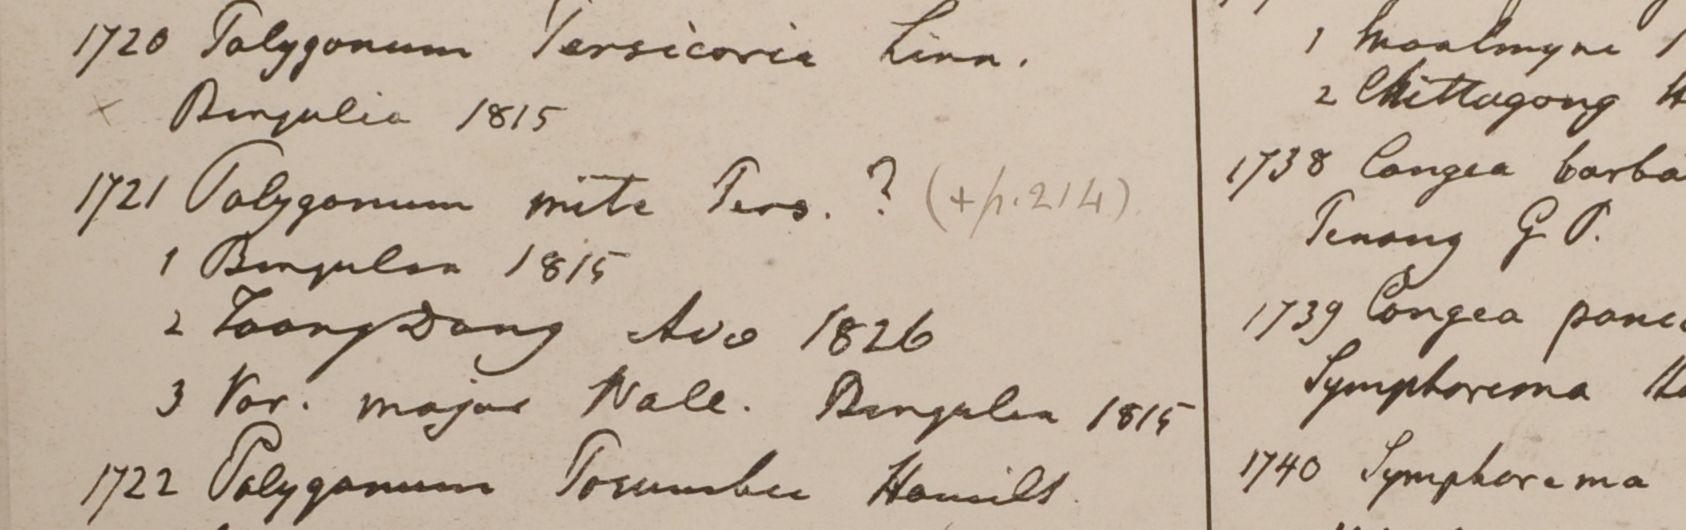 1720 Polygonum Persicaria Linn.
× Bengalia 1815
1721 Polygonum mite Pers. ? (+p. 214)
1 Bengalia 1815
2 Taong Dong Ava 1826
3 Var. major Wall. Bengalia 1815
1722 Polygonum Posumbu Hamilt.
1 Moalmyne 1
2 Chittagong H
1738 Congea barba
Penang G. P.
1739 Congea panic
Symphorema
1740 Symphorema